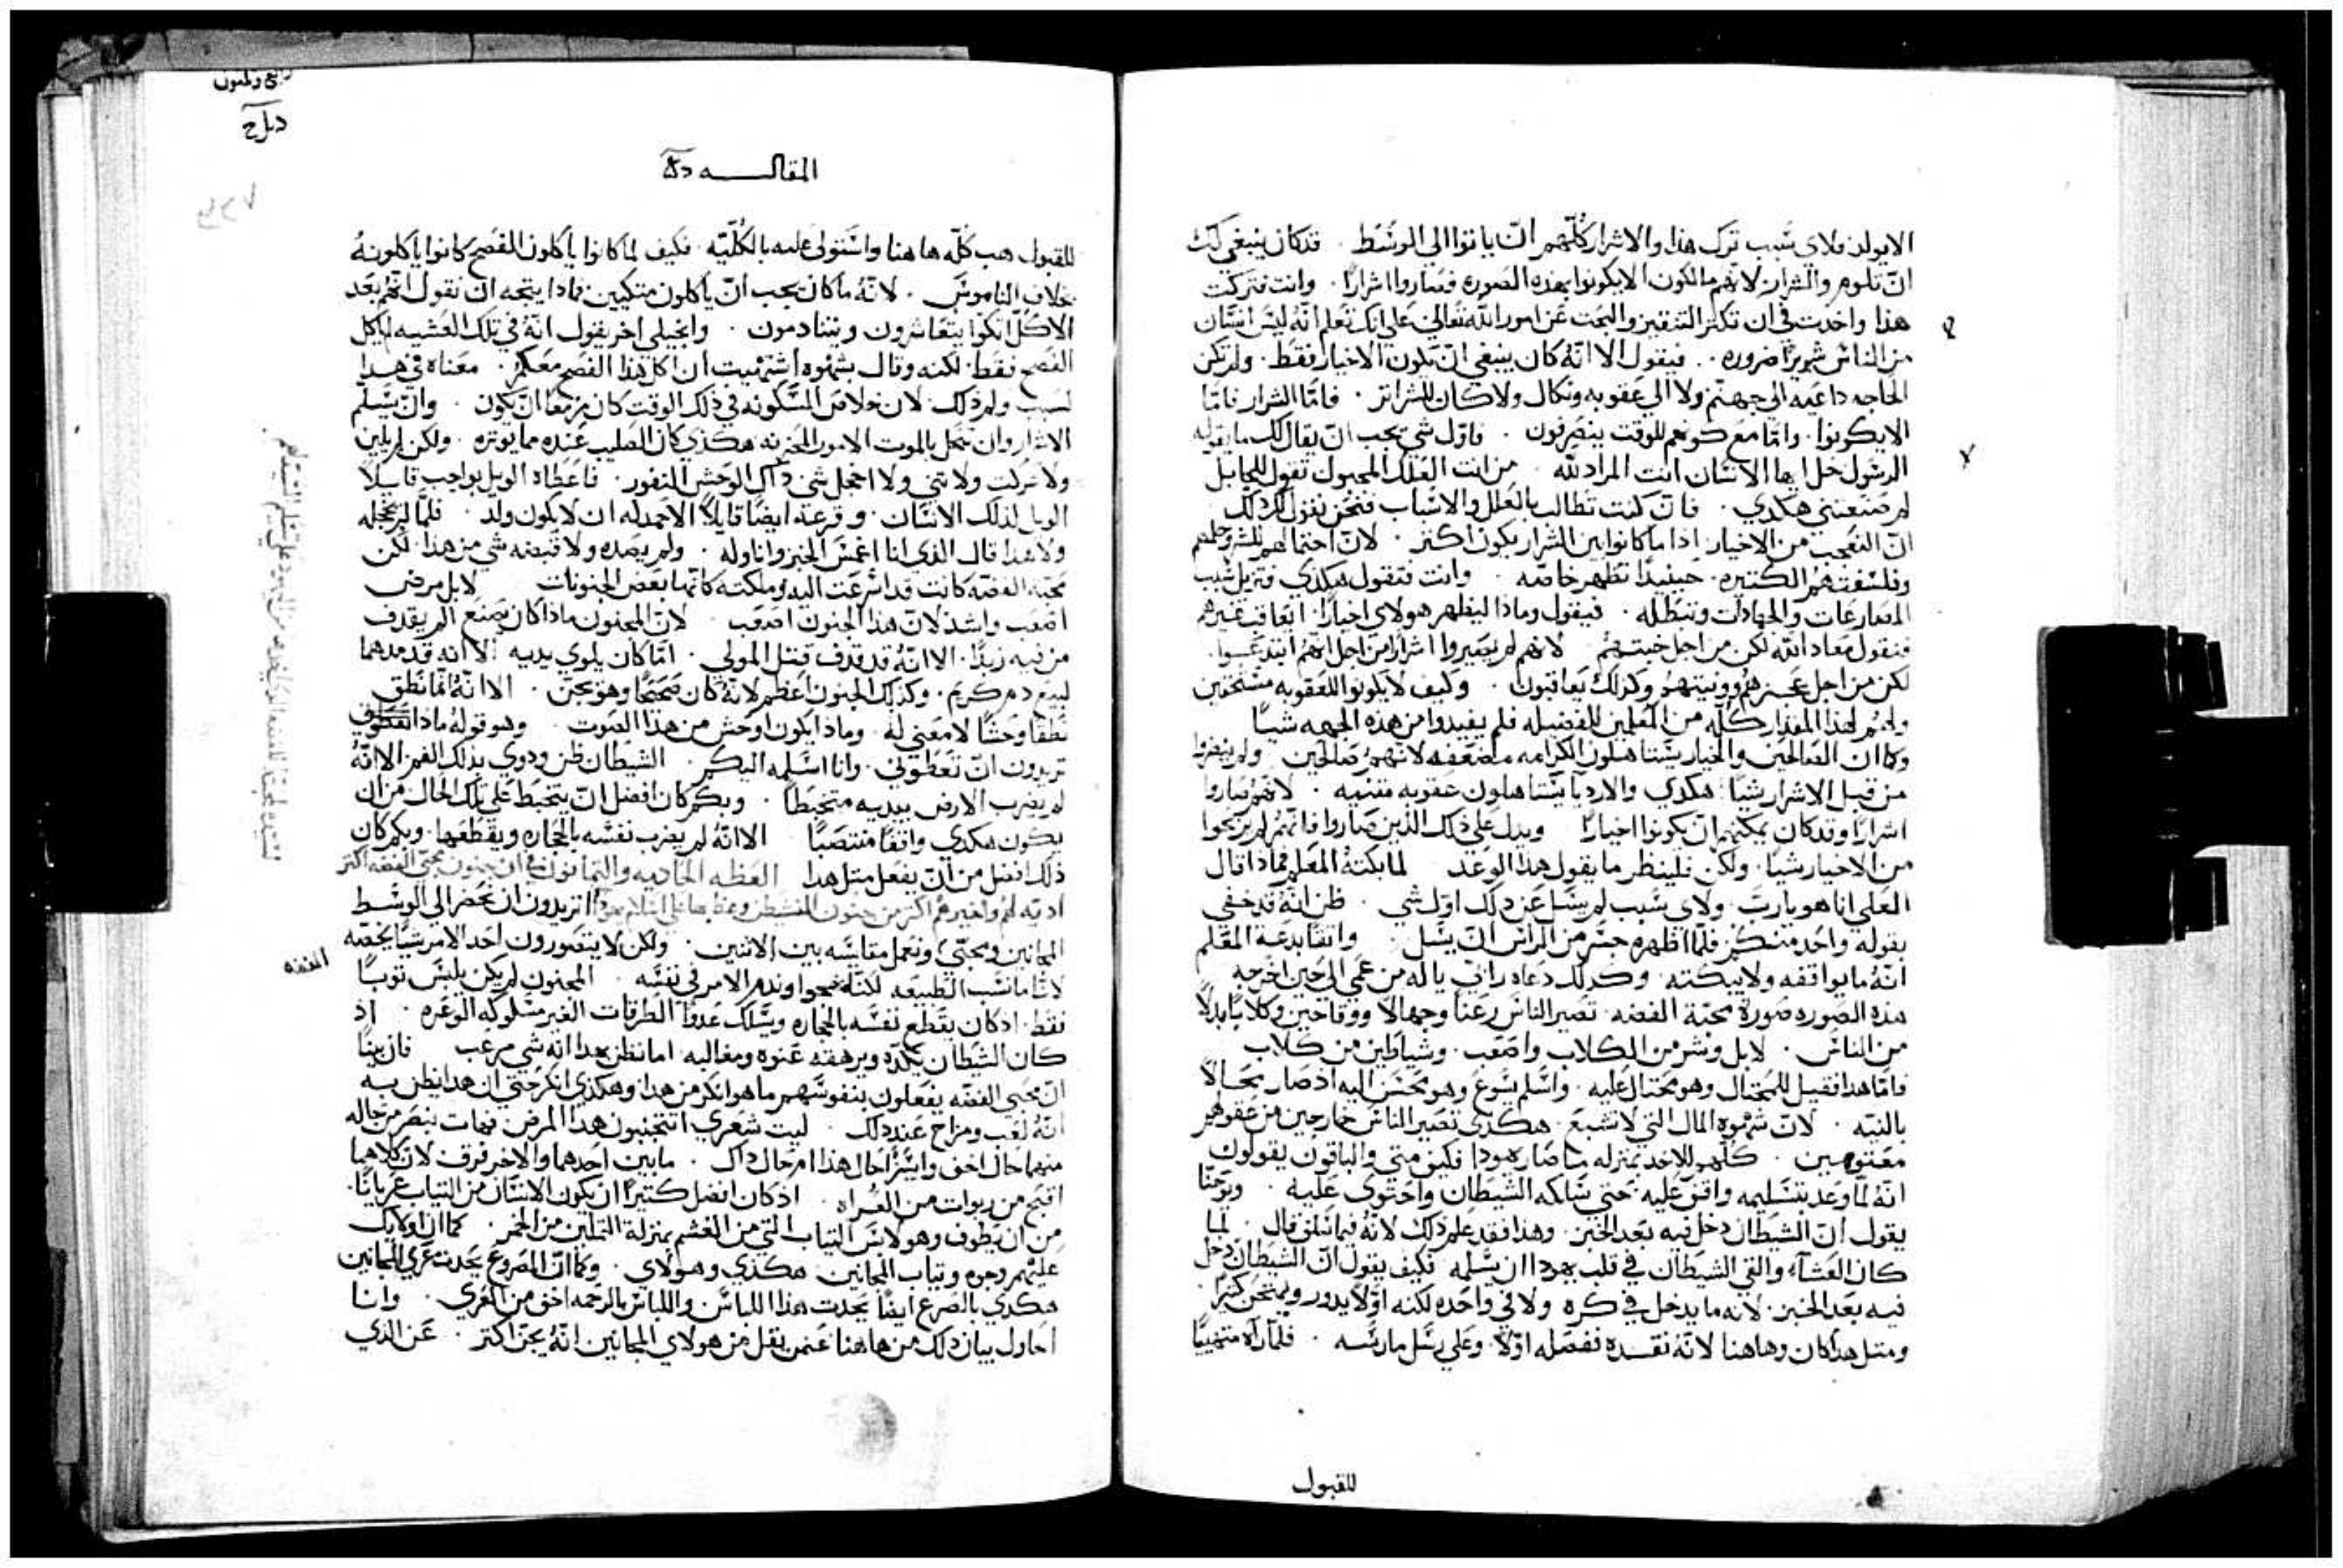 الايولد فلاي سبب ترك هذا والاشرار كلهم ان ياتوا الى الوسط . قد كان ينبغي لك
ان تلوم والشرار لانهم مالكون الا يكونوا بهذه الصوره فصاروا اشرارًا . وانت فتركت
هذا واخذت في ان تكثر التنقير والبحث عن امور الله تعالى على انك تعلم انه ليس انسان
من الناس شريرًا ضروره . فيقول الا انه كان ينبغي ان تكون الاخيار فقط . ولم تكن
الحاجه داعيه الى جهنم ولا الى عقوبه ونكال ولا كان للشر اثر . فامّا الشرار فامّا
الا يكونوا . وامّا مع كونهم للوقت ينصرفون . فاوّل شي يجب ان يقال لك ما يقوله
الرسول خل ايها الانسان انت المراد لله من انت الفلك المجبول تقول للجابل
لم صنعتني هكدي . فان كنت تطالب بالعلل والاسباب فنحن نقول لك دلك
ان التعجب من الاخيار ادا ما كانوا بين الشرار يكون اكثر . لان احتمالهم للشر وحلمهم
وفلسفتهم الكثيره . حينيدًا تظهر خاصه . وانت فتقول هكدي فتزيل سبب
المصارعات والجهادات وتبطله . فيقول وماذا ليظهر هولاي اخيارًا ايعاقب غيرهم
فنقول معاد الله لكن من اجل خبثهم لانهم لم يصيروا اشرارًا من اجل انهم ابتدعوا .
لكن من اجل عجزهم وونيتهم وكذلك يعاقبون . وكيف لا يكونوا للعقوبه مستحقين
ولهم هذا المقدار كله من المعلمين للفضيله فلم يفيدوا من هذه الجهه شيًا
وكما ان الصالحين والخيار يستاهلون الكرامه مضعفه لانهم صالحين ولم ينضروا
من قبل الاشرار شيًا . هكدي والارديا يستاهلون عقوبه مثنيه . لانهم صاروا
اشرارًا وقد كان يمكنهم ان يكونوا اخيارًا ويدل على ذلك الذين صاروا فانهم لم يربحوا
من الاخيار شيًا . ولكن فلينظر ما يقول هدا الوغد لما بكته المعلم فماذا قال
العلي انا هو يارب . ولاي سبب لم يسل عن دلك اول شي . ظن انه قد خفي
بقوله واحد منكم فلما اظهره جسر من الراس ان يسل واثقًا بدعة المعلم
انه ما يواقفه ولا يبكته . وكدلك دعاه رابي يا له من عمي الى اين اخرجه
هذه الصوره صورة محبة الفضه . تصير الناس رعنًا وجهالًا ووقاحين وكلابًا بدلًا
من الناس . لا بل وشر من الكلاب واصعب . وشياطين من كلاب
فامّا هدا فقبل للمحتال وهو محتال عليه . واسلم يسوع وهو محسن اليه اذ صار محالًا
بالنيه . لان شهوه المال التي لا تشبع . هكدي تصير الناس خارجين من عقولهم
معتوهين . كلهم للاخذ بمنزله ما صار يهودا فكيف متى والباقون يقولون
انه لمّا وعد بتسليمه وافق عليه . حتى سلكه الشيطان واحتوى عليه . ويوحنا
يقول ان الشيطان دخل فيه بعد الخبز . وهذا فقد علم دلك لانه فيما سلف قال لما
كان العشاء والقي الشيطان في قلب يهودا ان يسلمه فكيف يقول ان الشيطان دخل
فيه بعد الخبز . لانه ما يدخل في كره ولا في واحده لكنه اوّلًا يدور ويمتحن كثيرًا .
ومتل هدا كان وهاهنا لانه نقده ففصله اوّلًا . وعلى رسل مارسه . فلمّا راه متهييًا
للقبول
المقاله
للقبول هب كلّه هاهنا واستولى عليه بالكليّه . فكيف لما كانوا ياكلون الفصح كانوا ياكلونه
خلاف الناموس . لانه ما كان يجب ان ياكلون متكيين فادا يتجه ان نقول انهم بعد
الاكل اتكوا يتعاشرون ويتنادمون . وانجيلي اخر يقول انه في تلك العشيه لم ياكل
الفصح فقط . لكنه وقال بشهوه اشتهيت ان اكل هذا الفصح معكم . معناه في هدا
لسبب ولم ذلك . لان خلاص المسكونه في ذلك الوقت كان مزمعًا ان يكون . وان يسلم
الاسرار وان تنحل بالموت الامور المحزنه هكدي كان الصليب عنده مما يوثره . ولكن لم يلين
ولا حركت ولا تني ولا اخجل شي داك الوحش النفور . فاعطاه الويل بواجب قايلًا
الويل لذلك الانسان . وفزعه ايضًا قايلًا الاحمد له ان لا يكون ولد . فلمّا لم يخجله
ولا هدا قال الذي انا اغمس الخبز واناوله . ولم يصده ولا قبضه شي من هذا . لكن
محبة الفضه كانت قد اسرعت اليه وملكته كانها بعض الجنونات لا بل مرض
اصعب واشد لان هذا الجنون اصعب لان المجنون ماذا كان يصنع الم يقدف
من فيه زبدًا . الا انه قد قدف قتل المولى . امّا كان يلوي يديه الا انه قد مدهما
لبيع دم كريم . وكذلك الجنون اعظم لانه كان صحيحًا وهو يجن . الا انه امّا نطق
نطقًا وحشًا لا معنى له . وماذا يكون اوحش من هذا الصوت وهو قوله ماذا
تريدون ان تعطوني . وانا اسلمه اليكم . الشيطان ظن ودوي بذلك الفم الا انه
لم يضرب الارض بيديه متخبطًا . وبكم كان افضل ان يتخبط على تلك الحال من ان
يكون هكدي واقفًا منتصبًا الا انه لم يضرب نفسه بالحجاره ويقطعها . وبكم كان
ذلك افضل من ان يفعل متل هدا العظه الحاديه والثمانون في ان جنون محبي الفضه اكثر
اديه لهم ولغيرهم اكثر من جنون المتشيطن اتريدون ان نحضر الى الوسط
المجانين ومحبي ونعمل مقايسه بين الاثنين . ولكن لا يتصورون احد الامر شيًا يخصه
الفضه
لانّا ما نسب الطبيعه لكنّا نحوا ونذم الامر في نفسه . المجنون لم يكن يلبس ثوبًا
فقط . اد كان يقطع نفسه بالحجاره ويسلك عدوًا الطرقات الغير مسلوكه الوعره . اذ
كان الشيطان يكدّه ويرهقه عنوه ومغالبه اما نظن هدا انه شي مرعب فان بينا
ان محبي الفضه يفعلون بنفوسهم ما هو انكر من هدا وهكدي انكر حتى ان هدا يظن به
انه لعب ومزاح عند دلك . ليت شعري اتتجنبون هدا المرض فهات نبصر من حاله
منهما حال اخف وايسر احال هذا ام حال داك . ما بين احدهما والاخر فرق لان كلاهما
اقبح من ربوات من العراه . اذ كان افضل كثيرًا ان يكون الانسان من الثياب عريانًا .
من ان يطوف وهو لابس الثياب التي من الغشم بمنزلة الثملين من الخمر . كما ان اوليك
عليهم وجوه وثياب المجانين . هكدي وهولاي . وكما ان الصروع يحدث عري المجانين
هكدي بالصرع ايضًا يحدث هذا اللباس واللباس بالرحمه اخف من العري . وانا
احاول بيان ذلك من هاهنا عمن يقل من هولاي المجانين انه يجن اكثر . عن الذي